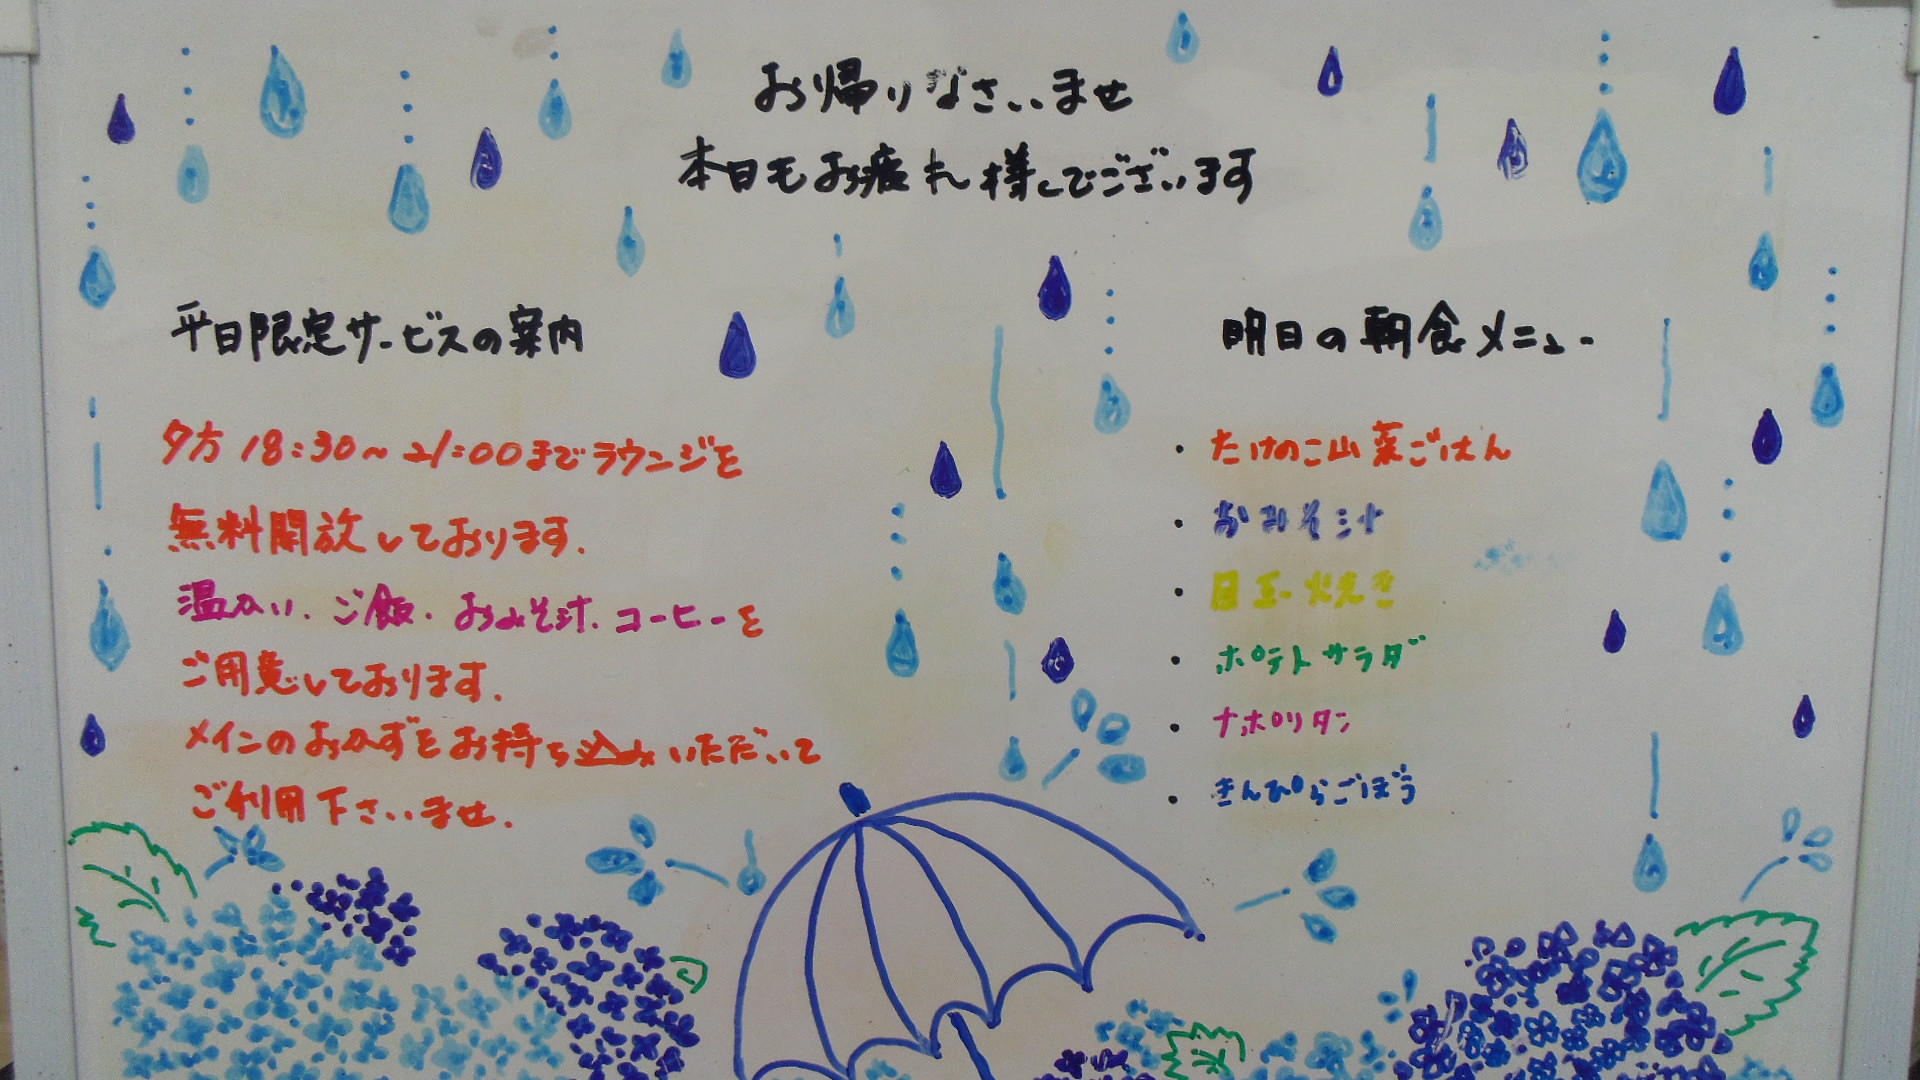 お帰りなさいませ
本日もお疲れ様でございます
平日限定サービスの案内
夕方18:30～21:00までラウンジを
無料開放しております.
温かい.ご飯.おみそ汁.コーヒーを
ご用意しております.
メインのおかずをお持ち込みいただいて
ご利用下さいませ.
明日の朝食メニュー
・たけのこ山菜ごはん
・おみそ汁
・目玉焼き
・ポテトサラダ
・ナポリタン
・きんぴらごぼう